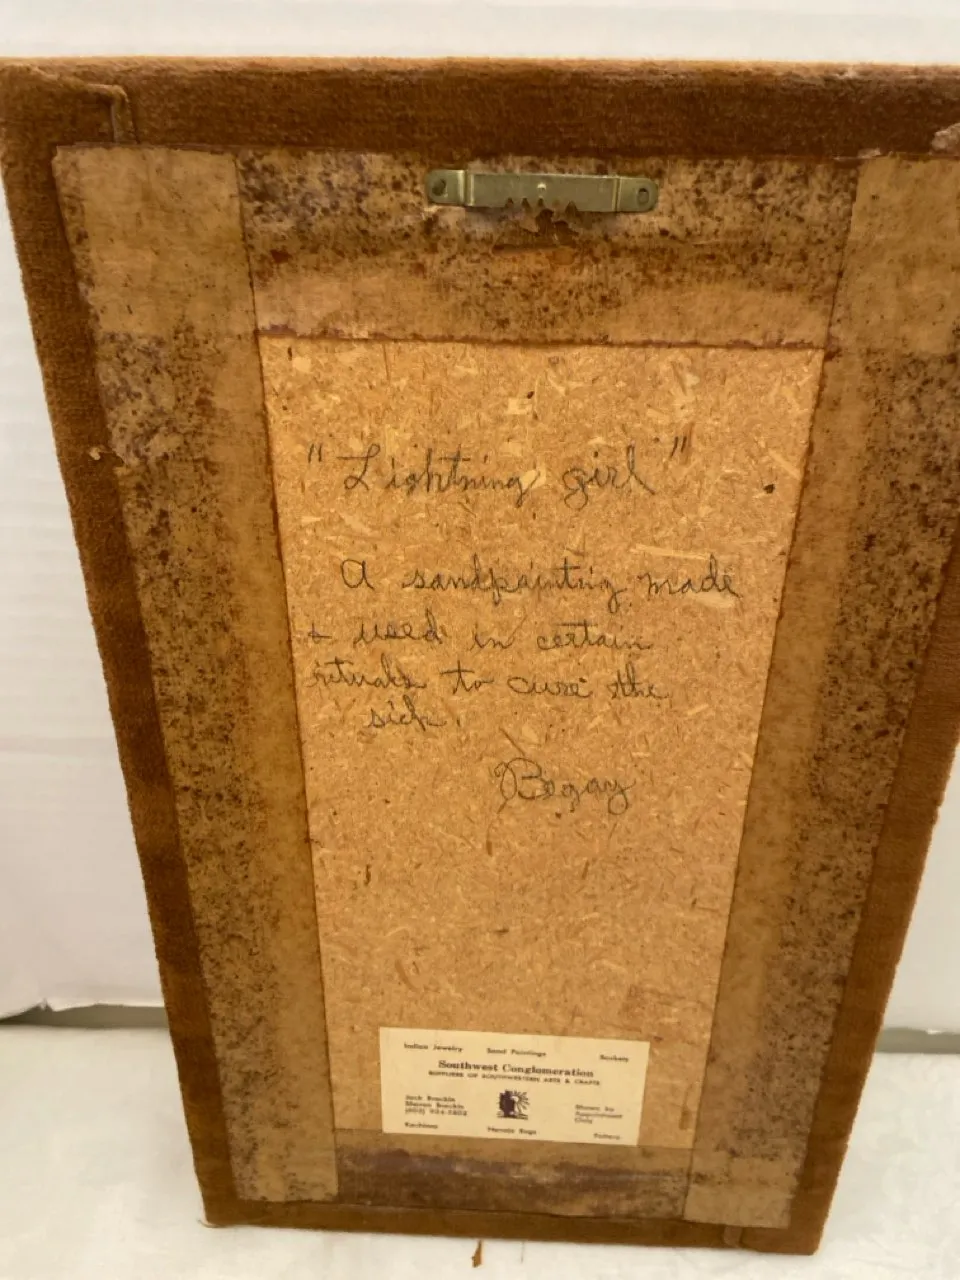 "Lightning girl"
A sandpainting made
& used in certain
rituals to cure the
sick.
Begay
Indian Jewelry Sand Paintings Baskets
Southwest Conglomeration
SUPPLIERS OF SOUTHWESTERN ARTS & CRAFTS
Shown by
Appointment
Only
Kachinas Navajo Rugs Pottery